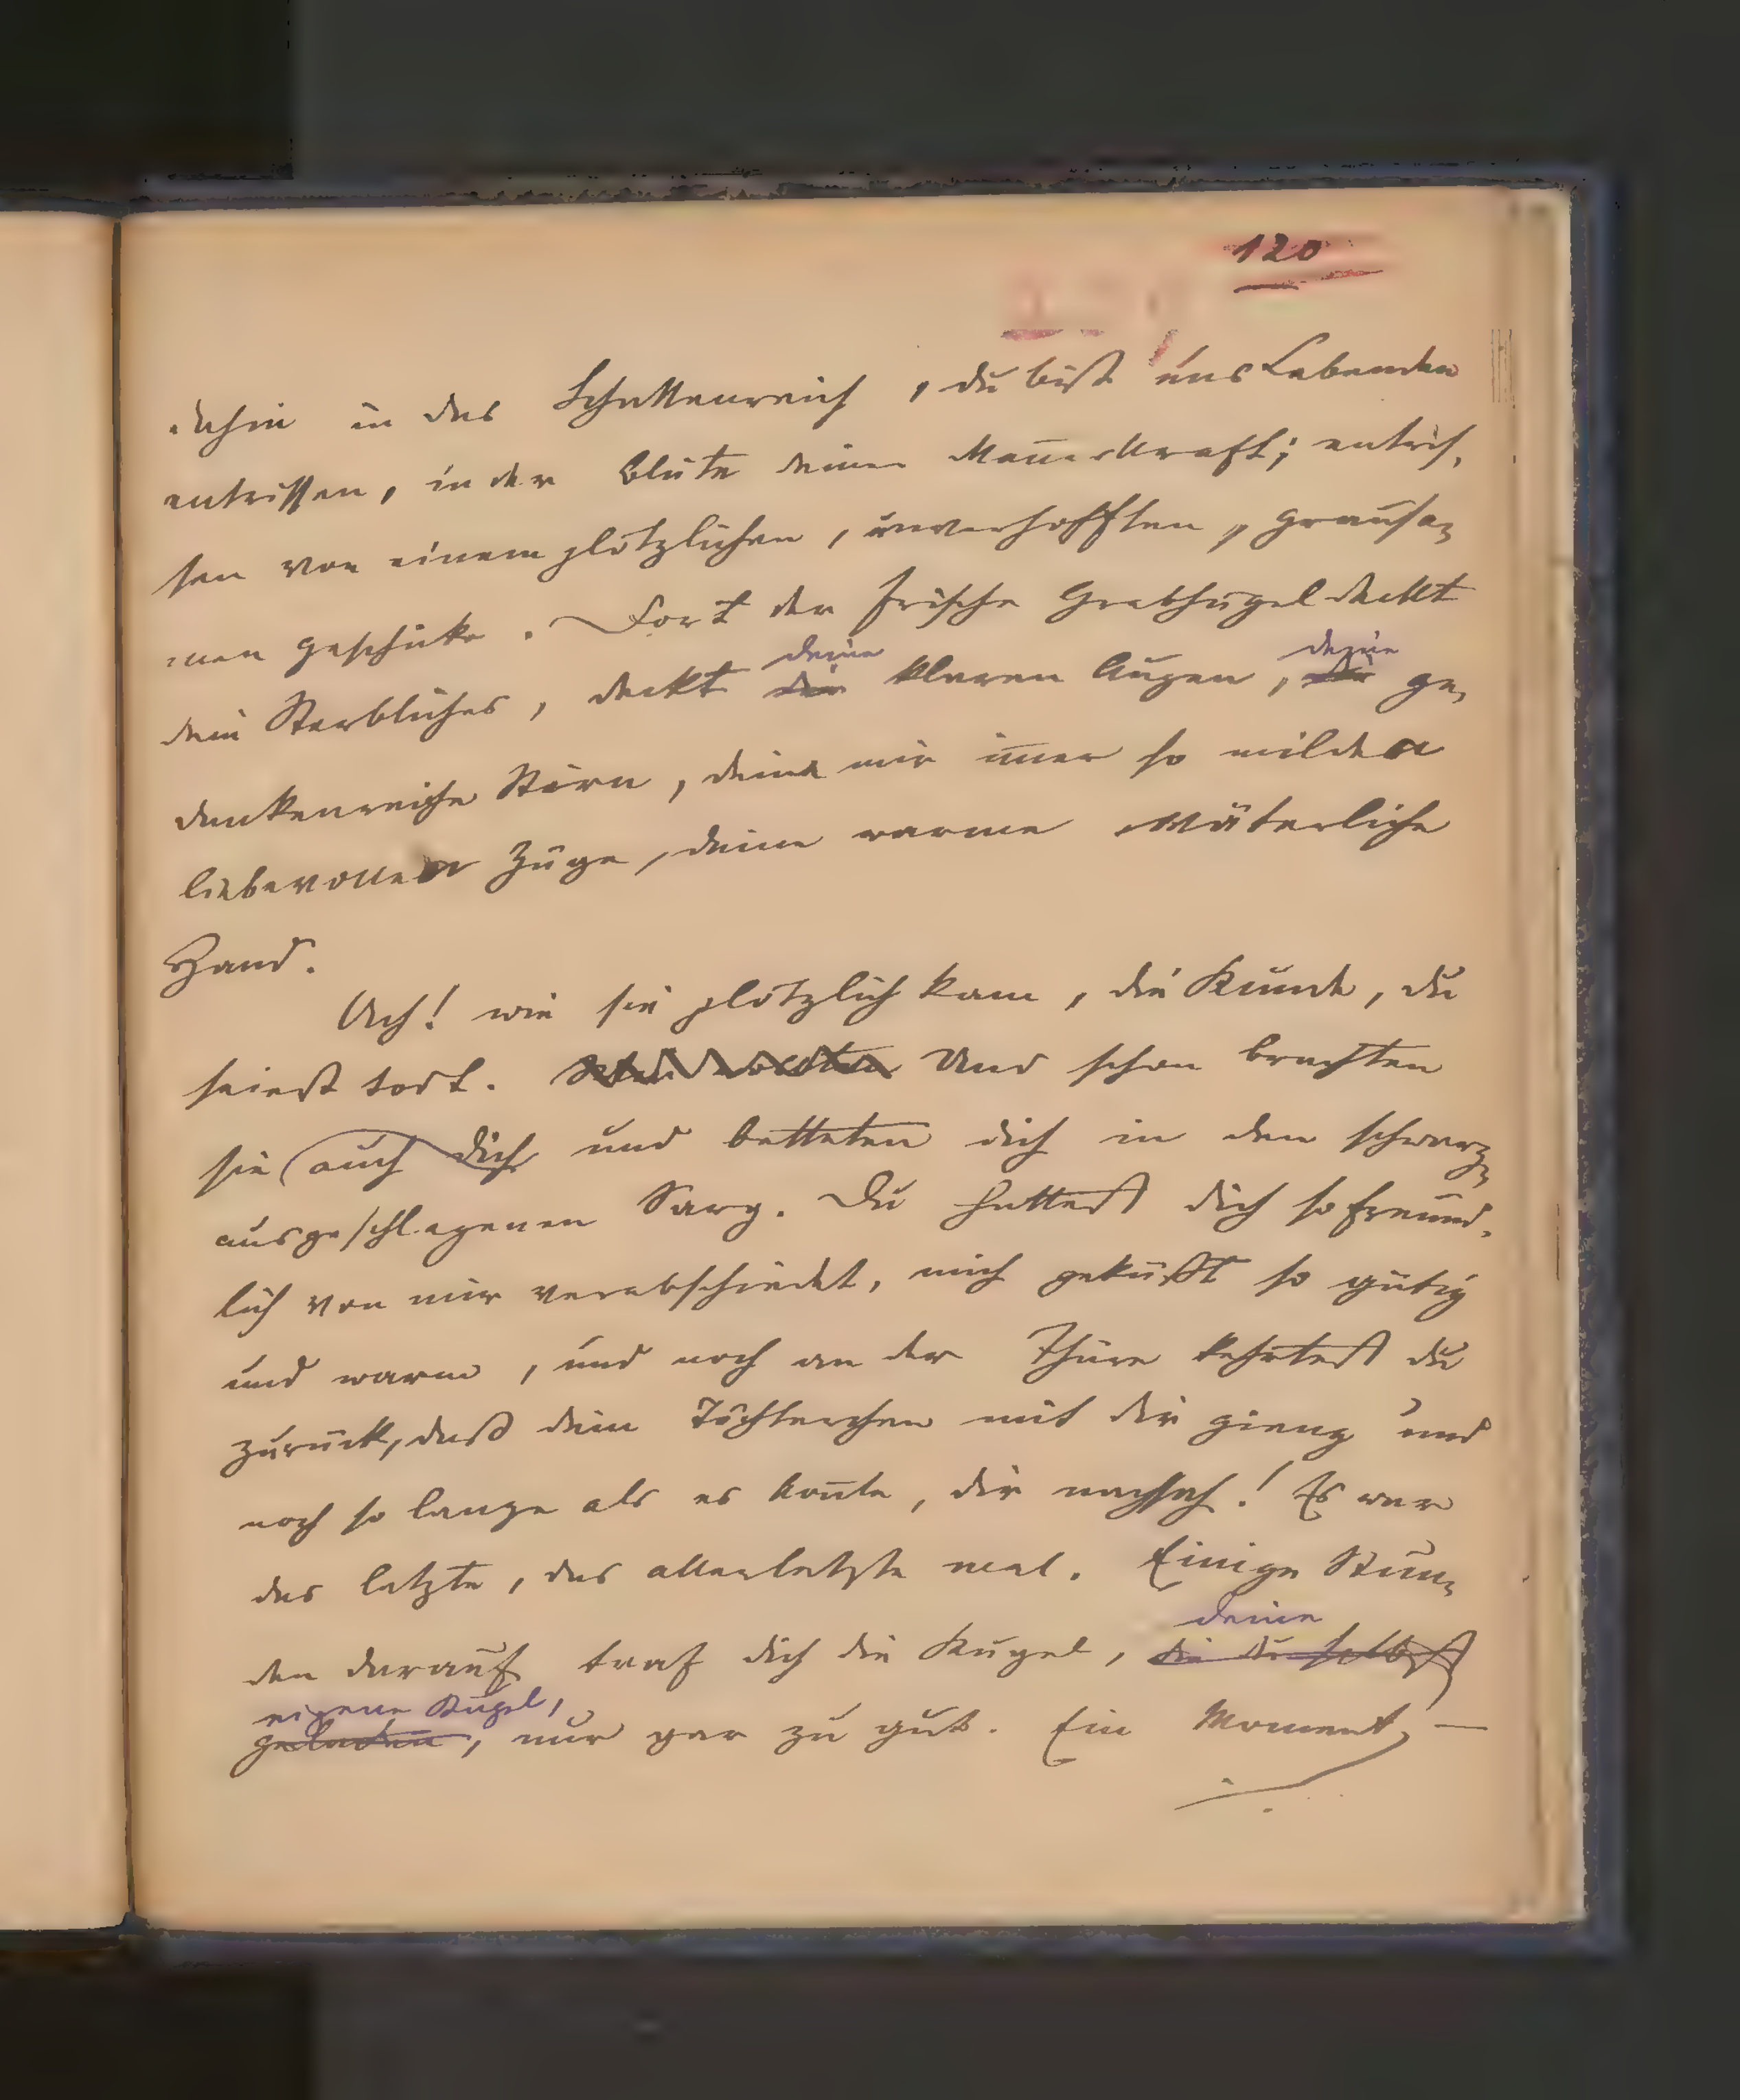 120
dahin in das Schattenreich, du bist uns Lebenden
entrissen, in der Blüte deiner Mañeskraft; entris-
sen von einem plötzlichen, unverhofften, grausa-
men Geschicke. Dort der frische Grabhügel deckt
deine deine
dein Sterbliches, deckt die klaren Augen, die ge-
dankenreiche Stirn, deine mir im̃er so milden
liebevollen Züge, deine warme väterliche
Hand.
Ach! wie sie plötzlich kam, die Kunde, du
seiest todt. Und schon brachten
sie auch dich und betteten dich in den schwarz-
ausgeschlagenen Sarg. Du hattest dich so freund-
lich von mir verabschiedet, mich geküßt so gütig
und warm, und noch an der Thüre kehrtest du
zurück, daß dein Töchterchen mit dir gieng und
noch so lange als es koñte, dir nachsah! Es war
das letzte, das allerletzte mal. Einige Stun-
deine
den darauf traf dich die Kugel, die du selbst
eigene Kugel,
geladen, nur gar zu gut. Ein Moment, —